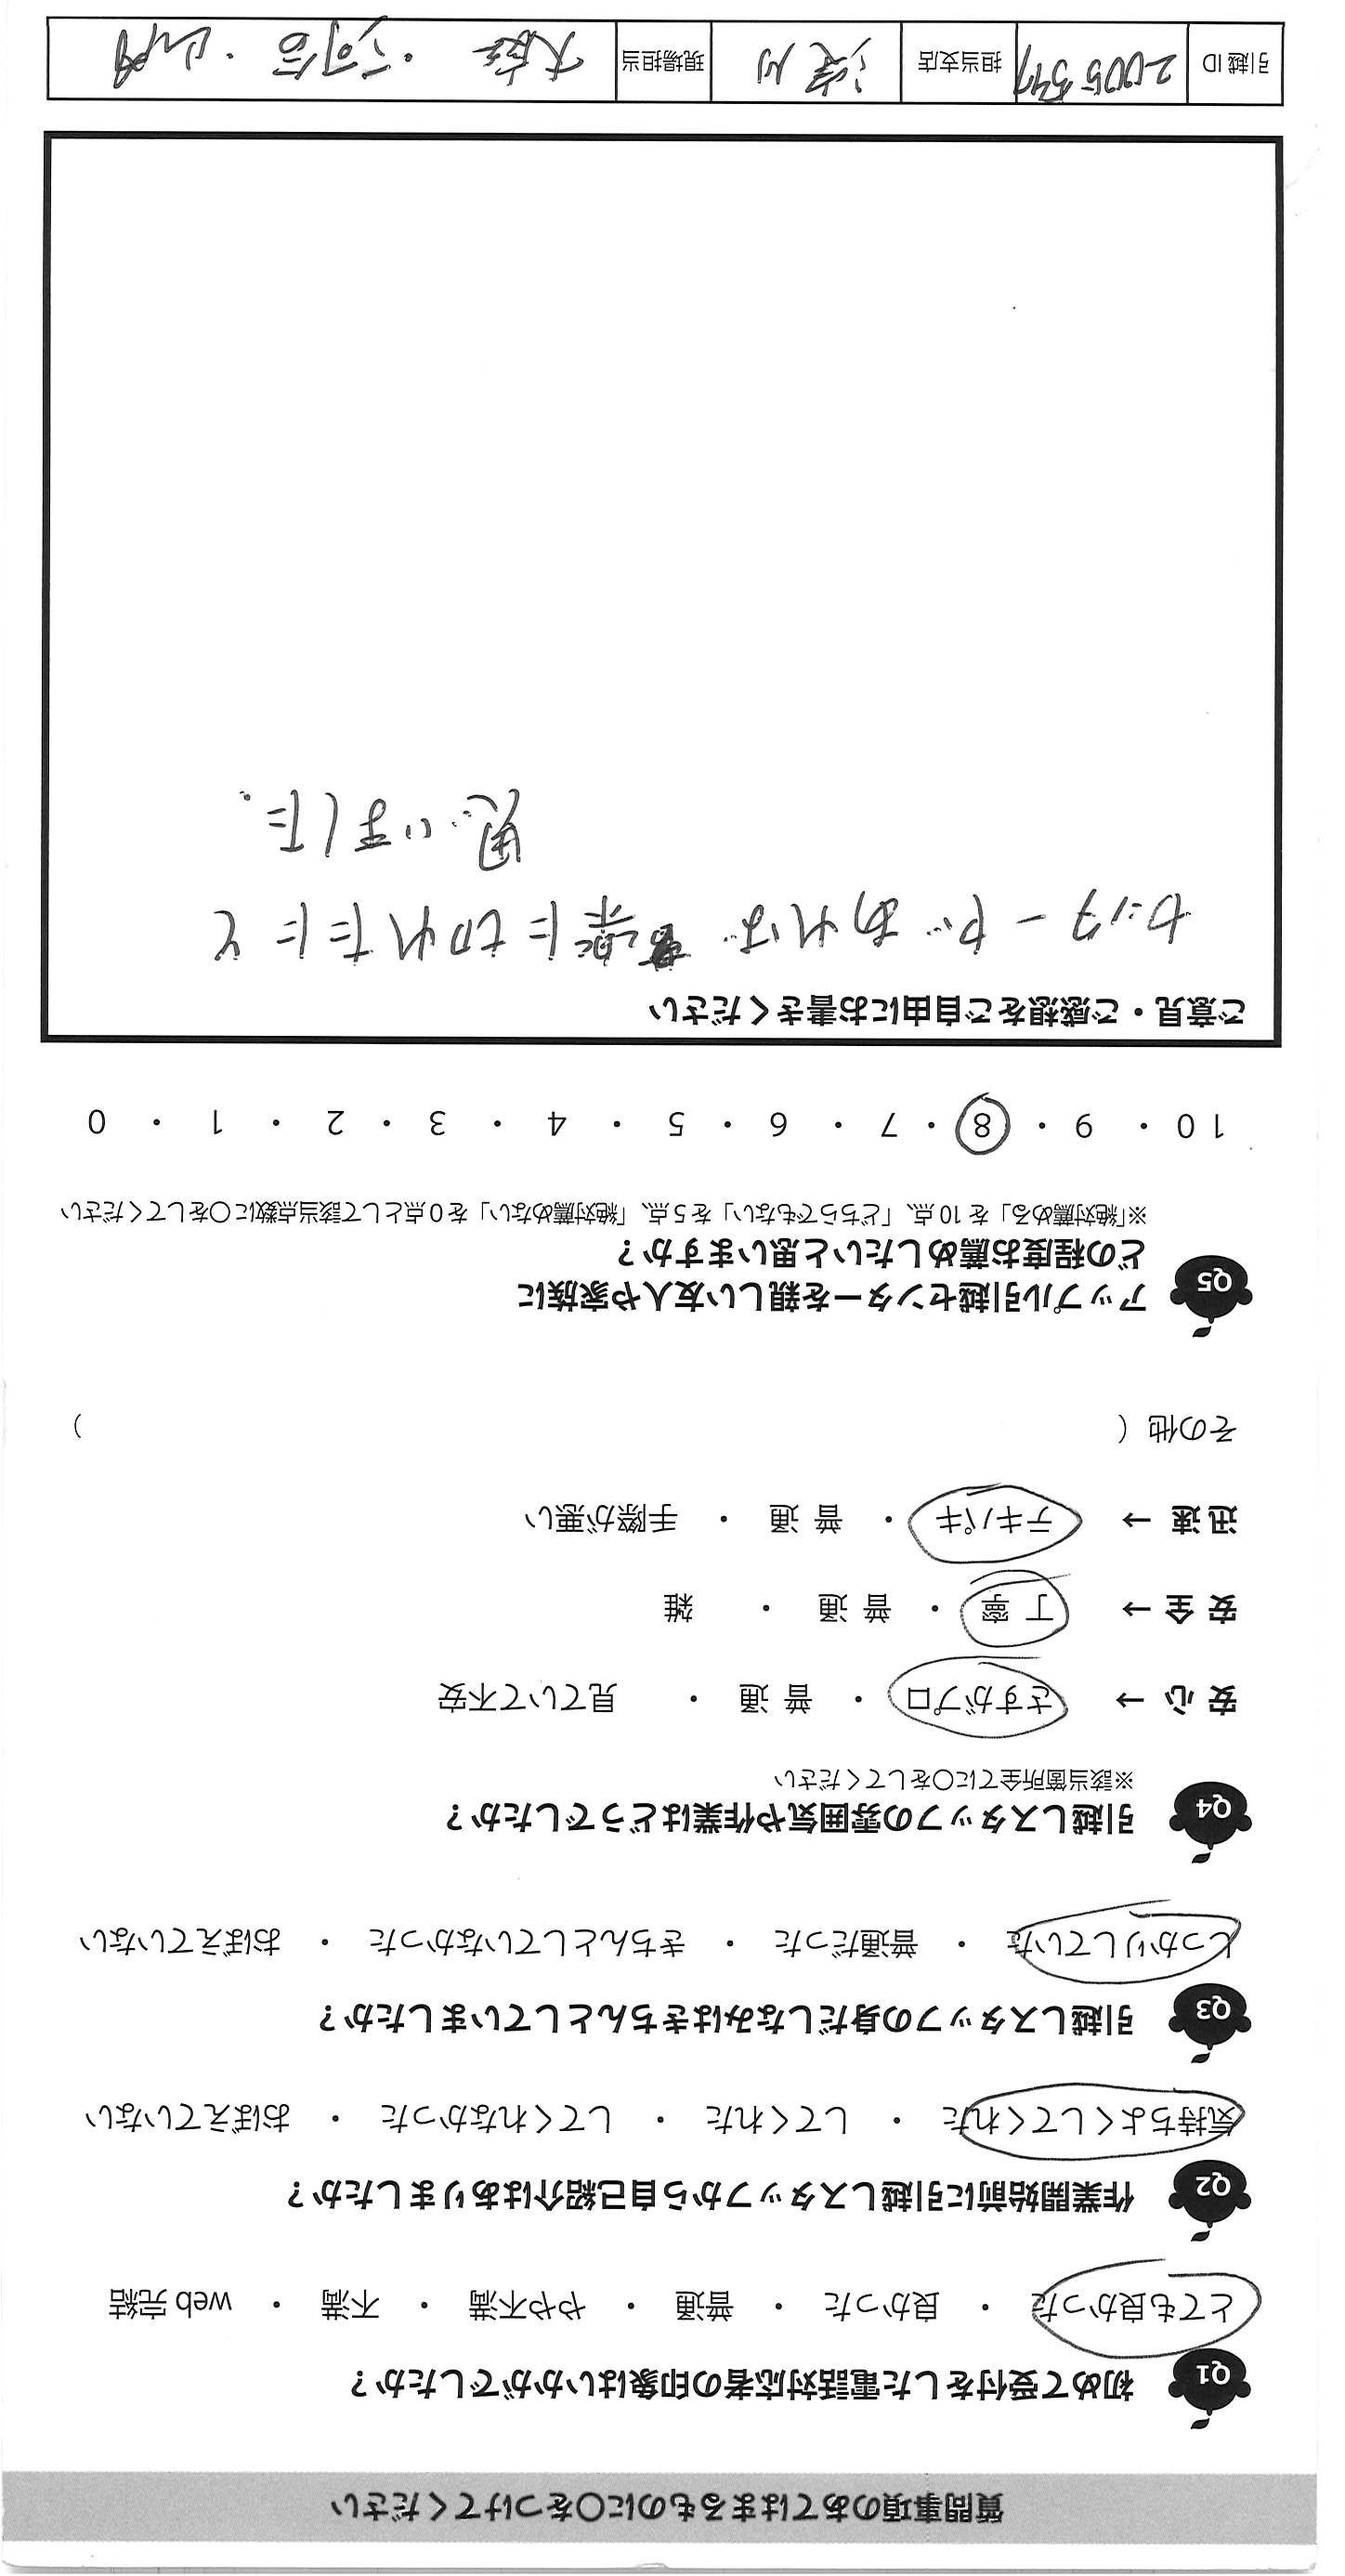 質問事項のあてはまるものに○をつけてください
Q1 初めて受付をした電話対応者の印象はいかがでしたか？
とても良かった ・ 良かった ・ 普通 ・ やや不満 ・ 不満 ・ web 完結
Q2 作業開始前に引越しスタッフから自己紹介はありましたか？
気持ちよくしてくれた ・ してくれた ・ してくれなかった ・ おぼえていない
Q3 引越しスタッフの身だしなみはきちんとしていましたか？
しっかりしていた ・ 普通だった ・ きちんとしていなかった ・ おぼえていない
Q4 引越しスタッフの雰囲気や作業はどうでしたか？
※該当箇所全てに○をしてください
安 心 → さすがプロ ・ 普 通 ・ 見ていて不安
安 全 → 丁 寧 ・ 普 通 ・ 雑
迅 速 → テキパキ ・ 普 通 ・ 手際が悪い
その他（ ）
Q5 アップル引越センターを親しい友人や家族に
どの程度お薦めしたいと思いますか？
※「絶対薦める」を 10 点、「どちらでもない」を 5 点、「絶対薦めない」を 0 点として該当点数に○をしてください
10 ・ 9 ・ 8 ・ 7 ・ 6 ・ 5 ・ 4 ・ 3 ・ 2 ・ 1 ・ 0
ご意見・ご感想をご自由にお書きください
カッターがあれば 楽に切れたにと
思いました.
引越 ID 2005547 担当支店 現場担当 大庭 ・ 河合 ・ 山内